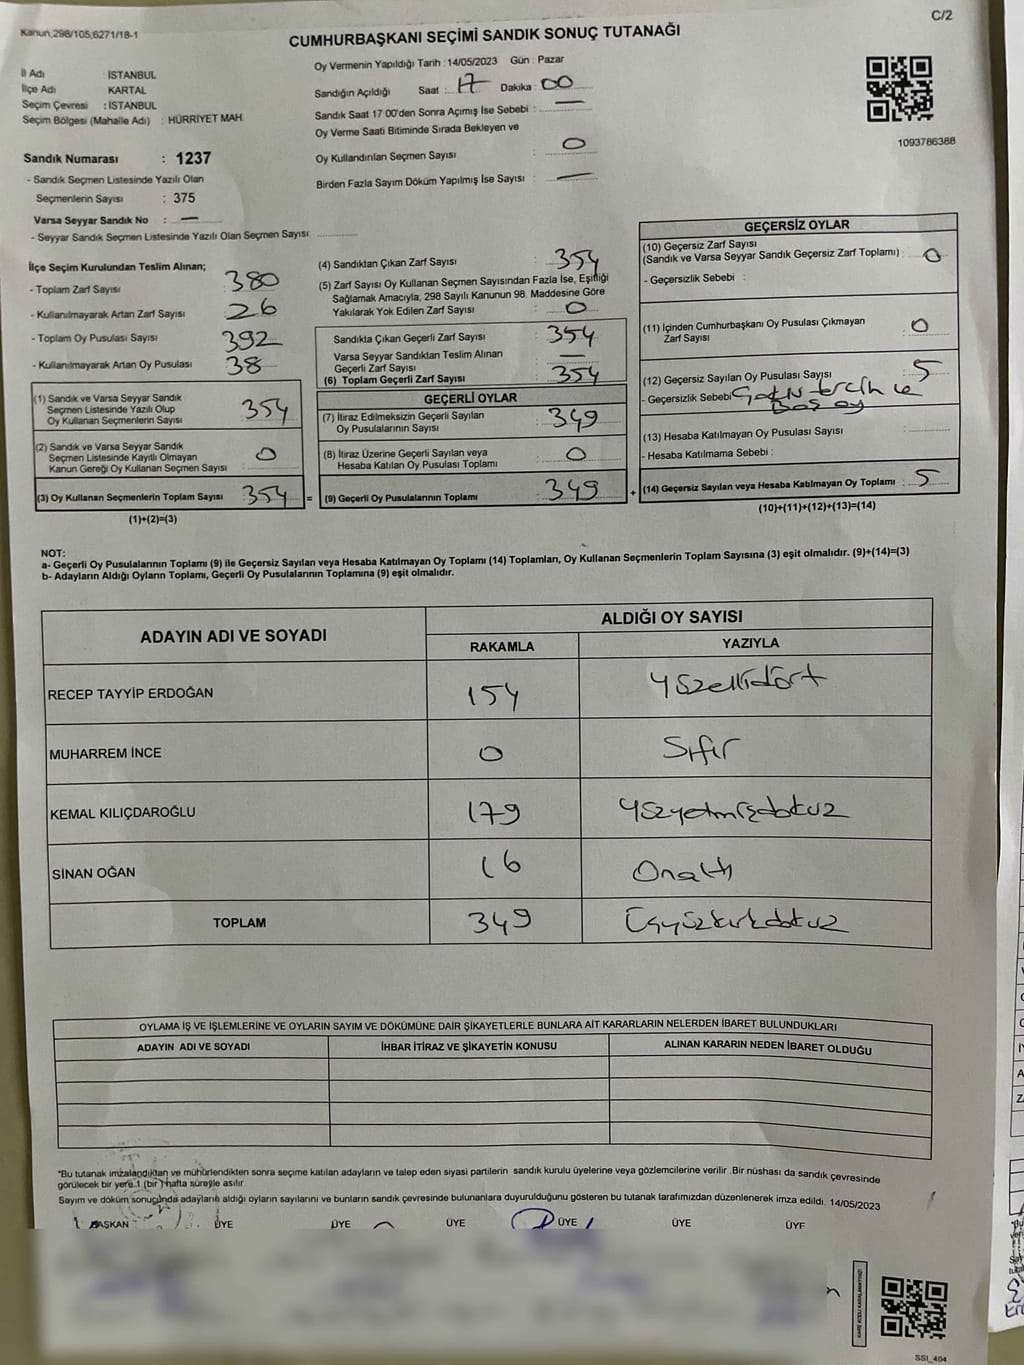 Kanun,298/105,6271/18-1
C/2
CUMHURBAŞKANI SEÇİMİ SANDIK SONUÇ TUTANAĞI
İl Adı : İSTANBUL
İlçe Adı KARTAL
Seçim Çevresi : İSTANBUL
Seçim Bölgesi (Mahalle Adı) : HÜRRİYET MAH.
Sandık Numarası : 1237
- Sandık Seçmen Listesinde Yazılı Olan
Seçmenlerin Sayısı : 375
Varsa Seyyar Sandık No : —
- Seyyar Sandık Seçmen Listesinde Yazılı Olan Seçmen Sayısı:
Oy Vermenin Yapıldığı Tarih : 14/05/2023 Gün : Pazar
Sandığın Açıldığı Saat : 17 Dakika : 00
Sandık Saat 17 00'den Sonra Açımış İse Sebebi : —
Oy Verme Saati Bitiminde Sırada Bekleyen ve
Oy Kullandırılan Seçmen Sayısı : 0
Birden Fazla Sayım Döküm Yapılmış İse Sayısı : —
1093786388
İlçe Seçim Kurulundan Teslim Alınan;
- Toplam Zarf Sayısı : 380
- Kullanılmayarak Artan Zarf Sayısı : 26
- Toplam Oy Pusulası Sayısı : 392
- Kullanılmayarak Artan Oy Pusulası : 38
(1) Sandık ve Varsa Seyyar Sandık
Seçmen Listesinde Yazılı Olup
Oy Kullanan Seçmenlerin Sayısı : 354
(2) Sandık ve Varsa Seyyar Sandık
Seçmen Listesinde Kayıtlı Olmayan
Kanun Gereği Oy Kullanan Seçmen Sayısı : 0
(3) Oy Kullanan Seçmenlerin Toplam Sayısı : 354 =
(1)+(2)=(3)
(4) Sandıktan Çıkan Zarf Sayısı : 354
(5) Zarf Sayısı Oy Kullanan Seçmen Sayısından Fazla İse, Eşitliği
Sağlamak Amacıyla, 298 Sayılı Kanunun 98. Maddesine Göre
Yakılarak Yok Edilen Zarf Sayısı : 0
Sandıkta Çıkan Geçerli Zarf Sayısı : 354
Varsa Seyyar Sandıktan Teslim Alınan
Geçerli Zarf Sayısı : —
(6) Toplam Geçerli Zarf Sayısı : 354
GEÇERLİ OYLAR
(7) İtiraz Edilmeksizin Geçerli Sayılan
Oy Pusulalarının Sayısı : 349
(8) İtiraz Üzerine Geçerli Sayılan veya
Hesaba Katılan Oy Pusulası Toplamı : 0
(9) Geçerli Oy Pusulalarının Toplamı : 349 +
GEÇERSİZ OYLAR
(10) Geçersiz Zarf Sayısı
(Sandık ve Varsa Seyyar Sandık Geçersiz Zarf Toplamı) : 0
- Geçersizlik Sebebi :
(11) İçinden Cumhurbaşkanı Oy Pusulası Çıkmayan
Zarf Sayısı : 0
(12) Geçersiz Sayılan Oy Pusulası Sayısı : 5
- Geçersizlik Sebebi tercih ve
Boş oy
(13) Hesaba Katılmayan Oy Pusulası Sayısı :
- Hesaba Katılmama Sebebi :
(14) Geçersiz Sayılan veya Hesaba Katılmayan Oy Toplamı : 5
(10)+(11)+(12)+(13)=(14)
NOT:
a- Geçerli Oy Pusulalarının Toplamı (9) ile Geçersiz Sayılan veya Hesaba Katılmayan Oy Toplamı (14) Toplamları, Oy Kullanan Seçmenlerin Toplam Sayısına (3) eşit olmalıdır. (9)+(14)=(3)
b- Adayların Aldığı Oyların Toplamı, Geçerli Oy Pusulalarının Toplamına (9) eşit olmalıdır.
ADAYIN ADI VE SOYADI
ALDIĞI OY SAYISI
RAKAMLA YAZIYLA
RECEP TAYYİP ERDOĞAN 154 Yüzellidört
MUHARREM İNCE 0 Sıfır
KEMAL KILIÇDAROĞLU 179 Yüzyetmişdokuz
SİNAN OĞAN 16 Onaltı
TOPLAM 349 Üçyüzkırkdokuz
OYLAMA İŞ VE İŞLEMLERİNE VE OYLARIN SAYIM VE DÖKÜMÜNE DAİR ŞİKAYETLERLE BUNLARA AİT KARARLARIN NELERDEN İBARET BULUNDUKLARI
ADAYIN ADI VE SOYADI İHBAR İTİRAZ VE ŞİKAYETİN KONUSU ALINAN KARARIN NEDEN İBARET OLDUĞU
*Bu tutanak imzalandıktan ve mühürlendikten sonra seçime katılan adayların ve talep eden siyasi partilerin sandık kurulu üyelerine veya gözlemcilerine verilir .Bir nüshası da sandık çevresinde
görülecek bir yere 1 (bir ) hafta süreyle asılır
Sayım ve döküm sonucunda adayların aldığı oyların sayılarını ve bunların sandık çevresinde bulunanlara duyurulduğunu gösteren bu tutanak tarafımızdan düzenlenerek imza edildi. 14/05/2023
BAŞKAN ÜYE ÜYE ÜYE ÜYE ÜYE ÜYE
SSI_404